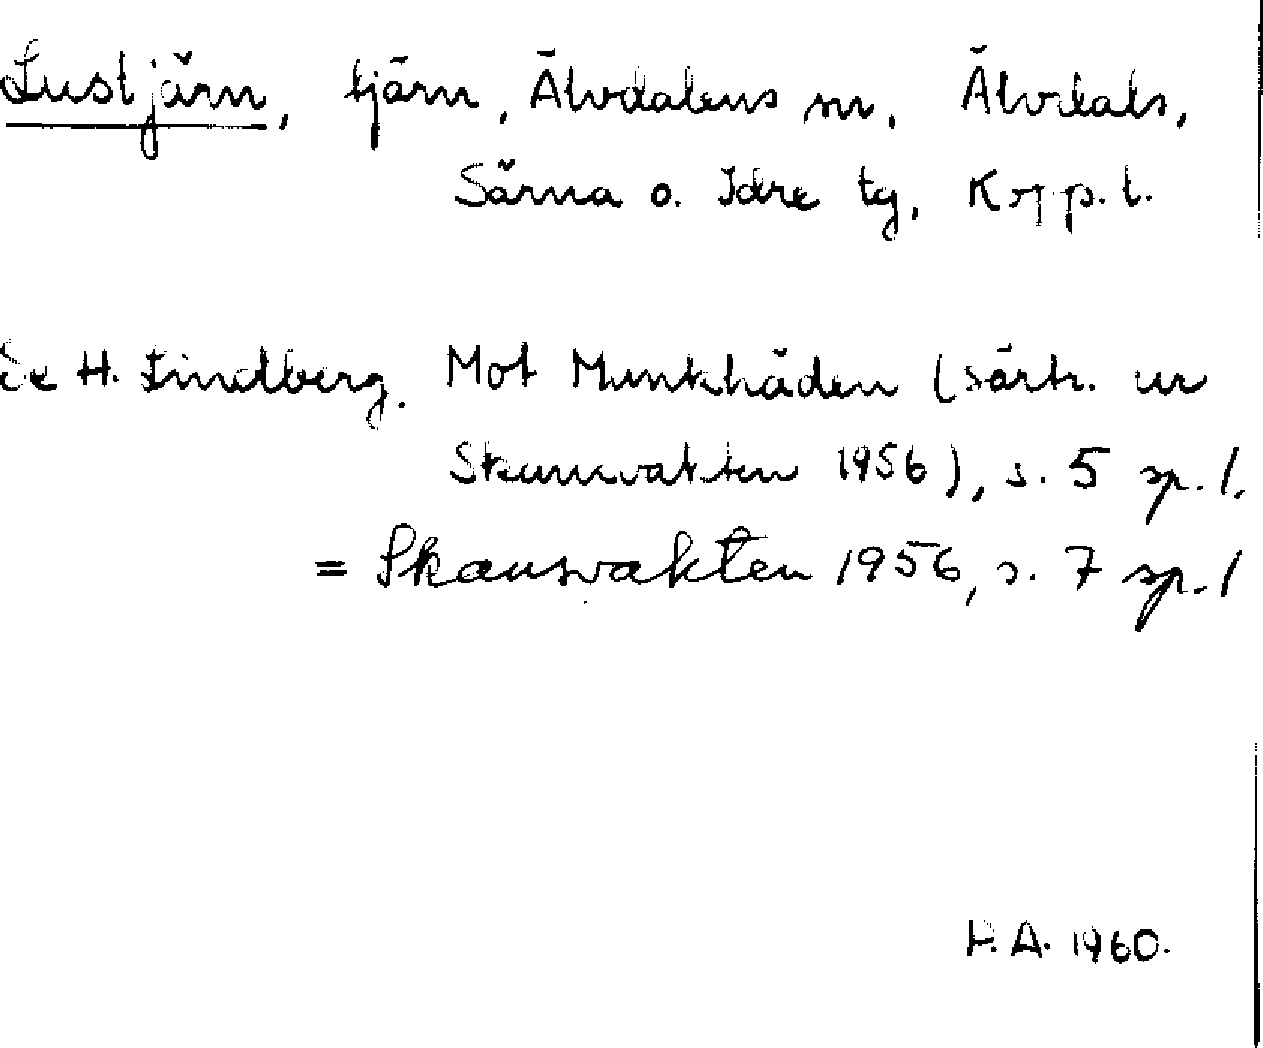 Lustjärn, tjärn, Älvdalens sn, Älvdals,
Särna o. Idre tg, Kopp. l.
Se H. Lindberg. Mot Munkhåden (särtr. ur
Skansvakten 1956), s. 5 sp. 1.
= Skansvakten 1956, s. 7 sp. 1
P.A. 1960.